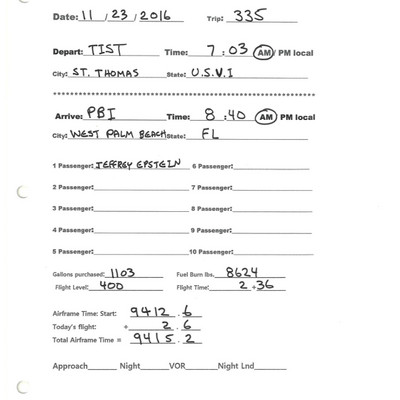 Date: 11 / 23 / 2016 Trip: 335
Depart: TIST Time: 7 : 03 AM / PM local
City: ST. THOMAS State: U.S.V.I
Arrive: PBI Time: 8 : 40 AM PM local
City: WEST PALM BEACH State: FL
1 Passenger: JEFFREY EPSTEIN 6 Passenger:
2 Passenger: 7 Passenger:
3 Passenger: 8 Passenger:
4 Passenger: 9 Passenger:
5 Passenger: 10 Passenger:
Gallons purchased: 1103 Fuel Burn lbs. 8624
Flight Level: 400 Flight Time: 2 + 36
Airframe Time: Start: 9412 . 6
Today's flight: + 2 . 6
Total Airframe Time = 9415 . 2
Approach Night VOR Night Lnd